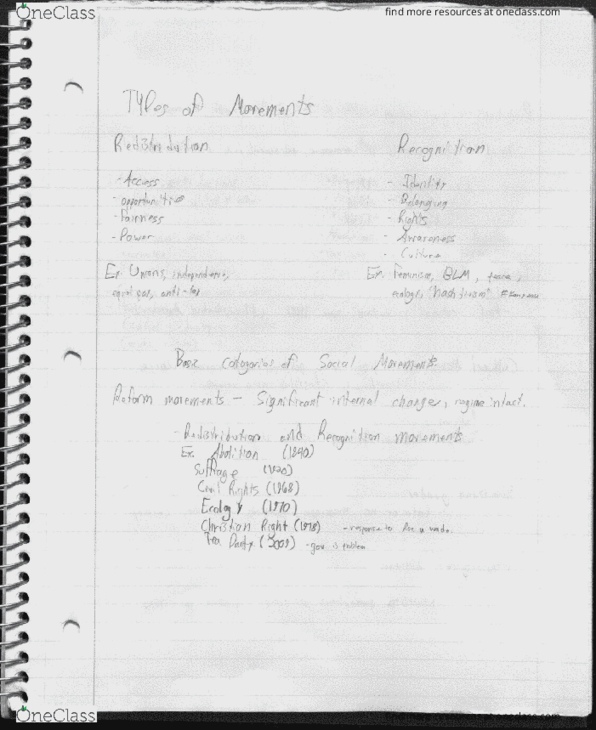 OneClass find more resources at oneclass.com
Types of Movements
Redistribution Recognition
- Access - Identity
- opportunities - Belonging
- Fairness - Rights
- Power - Awareness
- Culture
Ex. Unions, independence, Ex. Feminism, BLM, peace,
equal pay, anti- ecology,
Basic categories of Social Movements
Reform movements - Significant internal changes, regime intact.
- Redistribution and Recognition movements
Ex. Abolition (1840)
Suffrage (1920)
Civil Rights (1968)
Ecology (1970)
Christian Right (1978) - response to Roe v wade.
Tea Party (2009) - gov is problem
OneClass find more resources at oneclass.com